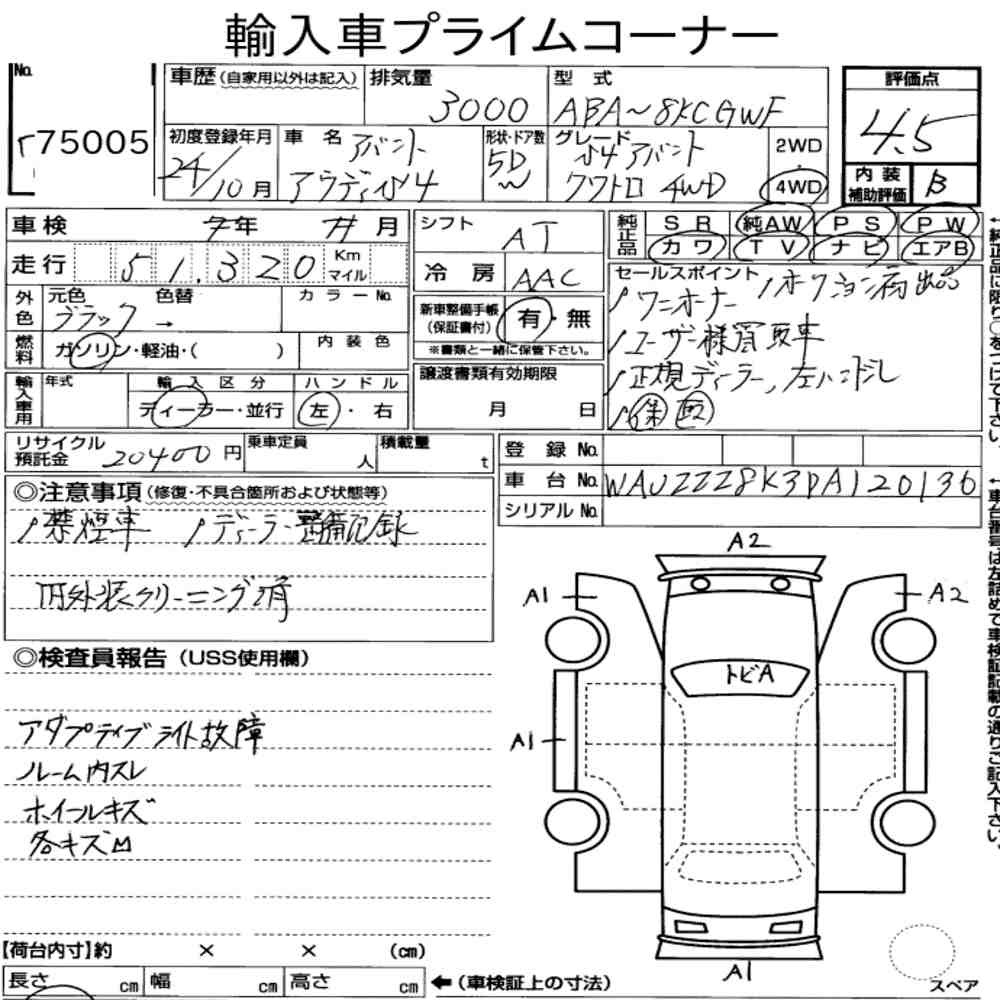 輸入車プライムコーナー
No.
75005
車歴(自家用以外は記入)
排気量
3000
型 式
ABA~8KCGWF
評価点
4.5
初度登録年月
24/10月
車 名
アバント
アウディS4
形状・ドア数
5D
W
グレード
S4 アバント
クワトロ 4WD
2WD
・
4WD
内装
補助評価
B
車検
年
月
シフト
AT
純正品
SR
純AW
PS
PW
カワ
TV
ナビ
エアB
走行
51,320
Km
マイル
冷房
AAC
セールスポイント
ワンオーナー
ユーザー様買取車
正規ディーラー, 左ハンドル
保 取
外色
元色
ブラック
色替
→
カラーNo.
新車整備手帳
(保証書付)
有・無
※書類と一緒に保管下さい。
燃料
ガソリン・軽油・( )
内装色
輸入車用
年式
輸入区分
ディーラー・並行
ハンドル
左・右
譲渡書類有効期限
月 日
リサイクル
預託金
20400円
乗車定員
人
積載量
t
登録 No.
車台 No.
WAUZZZ8K3DA120136
シリアル No.
◎注意事項(修復・不具合箇所および状態等)
禁煙車
ディーラー整備記録
内外装クリーニング済
◎検査員報告(USS使用欄)
アダプティブライト故障
ルーム内スレ
ホイールキズ
各キズ凹
A2
A1
A2
トビA
A1
A1
【荷台内寸】約 × × (cm)
長さ cm
幅 cm
高さ cm
←(車検証上の寸法)
スペア
←純正品に限り○をつけて下さい。
←車台番号は左詰めで車検証記載の通りご記入下さい。